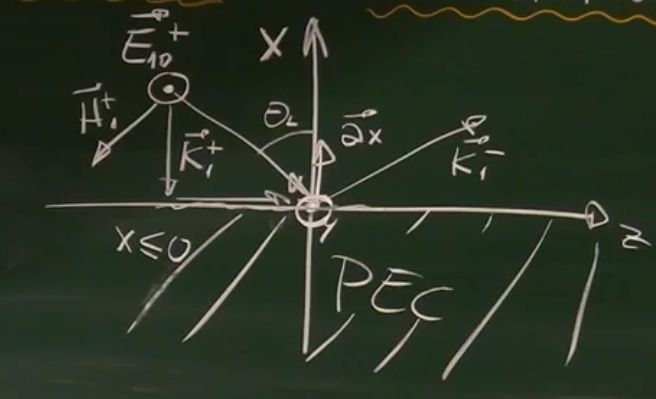 E₁₀⁺
X
H₁⁺
K₁⁺
θi
ax
K₁⁻
X≤0
y
z
PEC